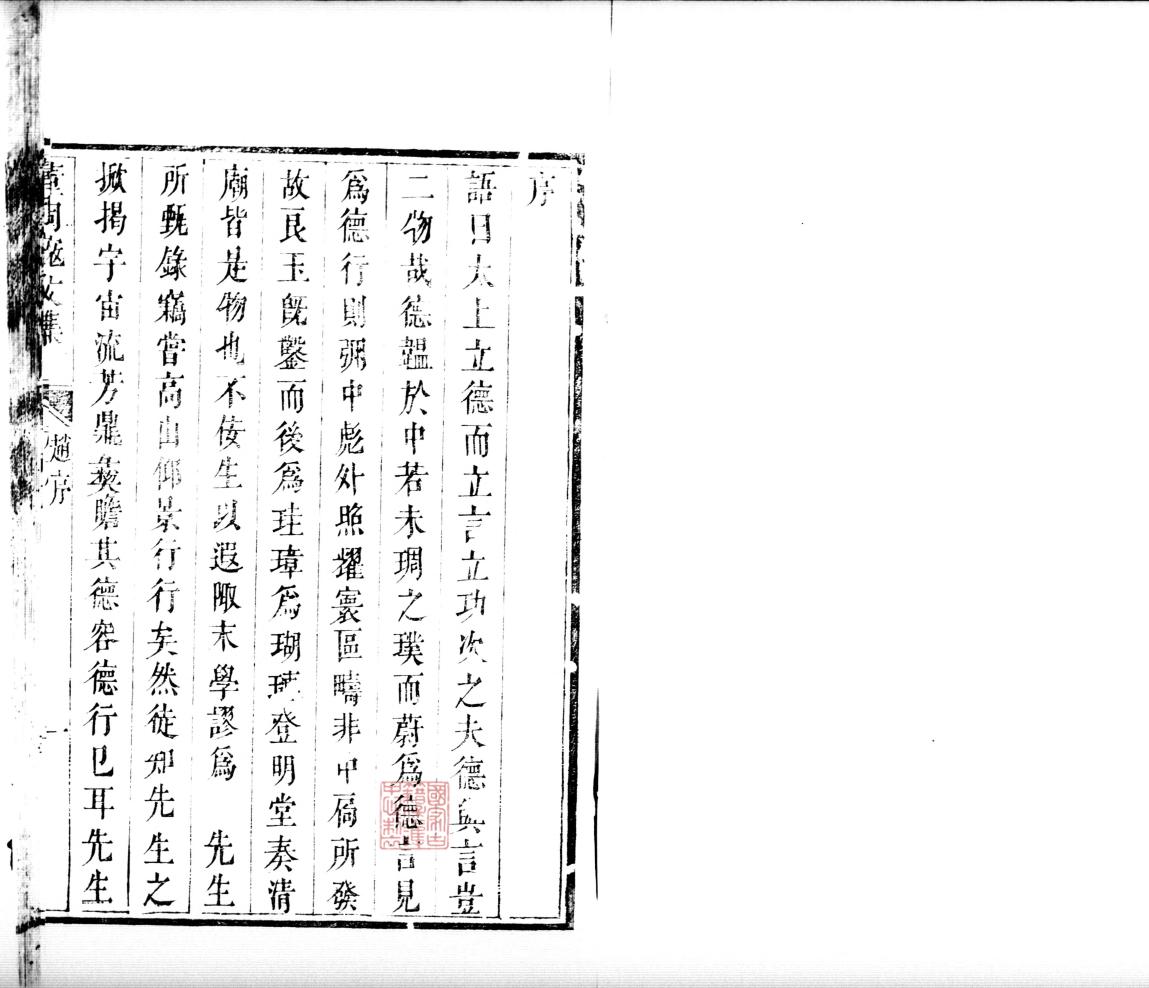 序
語曰太上立德而立言立功次之夫德與言豈
二物哉德韞於中若未琱之璞而蔚爲德言見
爲德行則弸中彪外照耀寰區疇非中扃所發
故良玉旣鑿而後爲珪璋爲瑚璉登明堂奏清
廟皆是物也不佞生以遐陬末學謬爲　先生
所甄錄竊嘗高山仰景行行矣然徒知先生之
掀揭宇宙流芳鼎彝瞻其德容德行已耳先生
文集
趙序
一